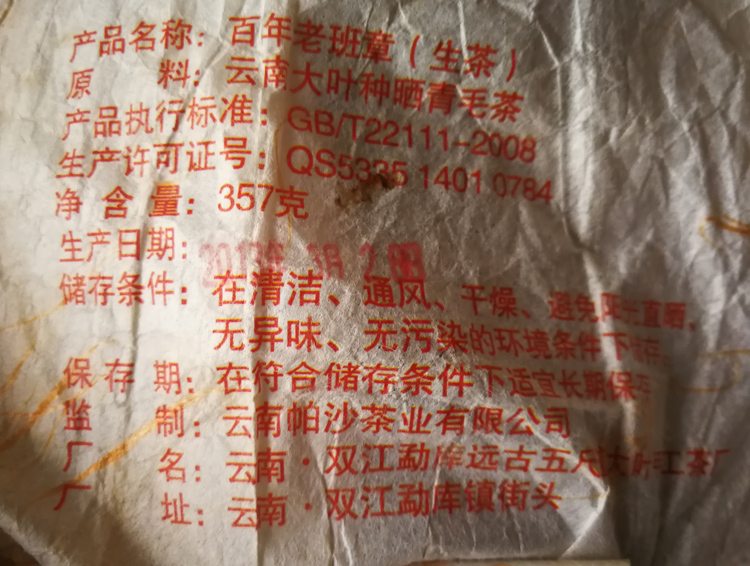 产品名称：百年老班章（生茶）
原 料：云南大叶种晒青毛茶
产品执行标准：GB/T22111-2008
生产许可证号：QS5335 1401 0784
净 含 量：357克
生产日期：
储存条件：在清洁、通风、干燥、避免阳光直晒、
无异味、无污染的环境条件下
保 存 期：在符合储存条件下适宜长期保
监 制：云南帕沙茶业有限公司
厂 名：云南·双江勐库远古五 茶厂
厂 址：云南·双江勐库镇街头